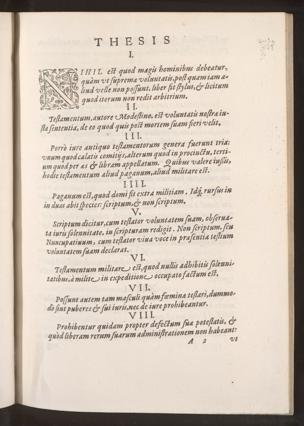 THESIS
I.
NIHIL est quod magis hominibus debeatur,
quàm vt supremæ voluntatis, post quam iam a-
liud velle non possunt, liber sit stylus, & licitum
quod iterum non redit arbitrium.
II.
Testamentum, autore Modestino, est voluntatis nostræ iu-
sta sententia, de eo quod quis post mortem suam fieri velit.
III.
Porrò iure antiquo testamentorum genera fuerunt tria:
vnum quod calatis comitijs, alterum quod in procinctu, terti-
um quod per æs & libram appellatum. Quibus valere iussis,
hodie testamentum aliud paganum, aliud militare est.
IIII.
Paganum est, quod domi fit extra militiam, Idq́ rursus in
in duas abit species: scriptum, & non scriptum.
V.
Scriptum dicitur, cum testator voluntatem suam, obserua-
ta iuris solennitate, in scripturam redigit. Non scriptum, seu
Nuncupatiuum, cum testator viua voce in præsentia testium
voluntatem suam declarat.
VI.
Testamentum militare est, quod nullis adhibitis solenni-
tatibus, à milite in expeditione occupato factum est.
VII.
Possunt autem tam masculi quàm fœminæ testari, dummo-
do sint puberes & sui iuris, nec de iure prohibeantur.
VIII.
Prohibentur quidam propter defectum suæ potestatis, &
quòd liberam rerum suarum administrationem non habeant:
A 2 vt